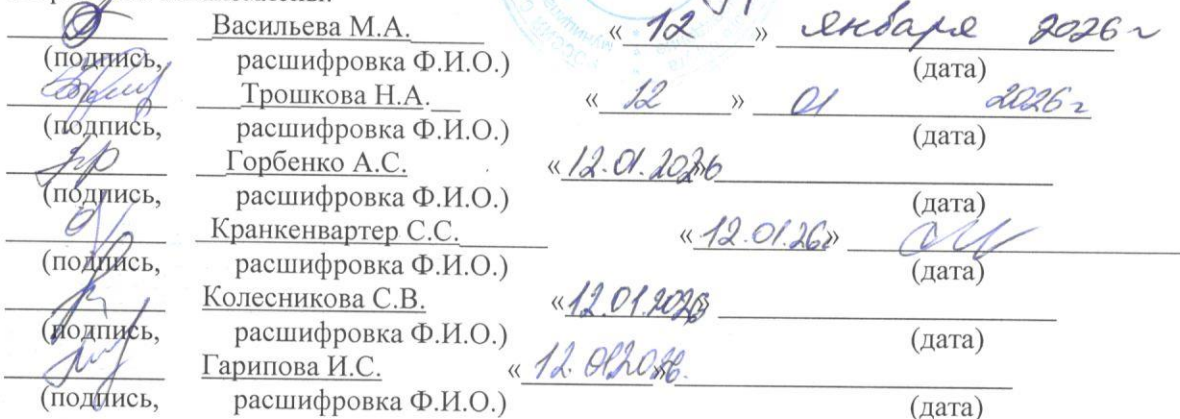 Васильева М.А. « 12 » января 2026 г
(подпись, расшифровка Ф.И.О.) (дата)
Трошкова Н.А. « 12 » 01 2026 г
(подпись, расшифровка Ф.И.О.) (дата)
Горбенко А.С. «12.01.2026
(подпись, расшифровка Ф.И.О.) (дата)
Кранкенвартер С.С. «12.01.26г»
(подпись, расшифровка Ф.И.О.) (дата)
Колесникова С.В. «12.01.2026»
(подпись, расшифровка Ф.И.О.) (дата)
Гарипова И.С. «12.01.2026.
(подпись, расшифровка Ф.И.О.) (дата)